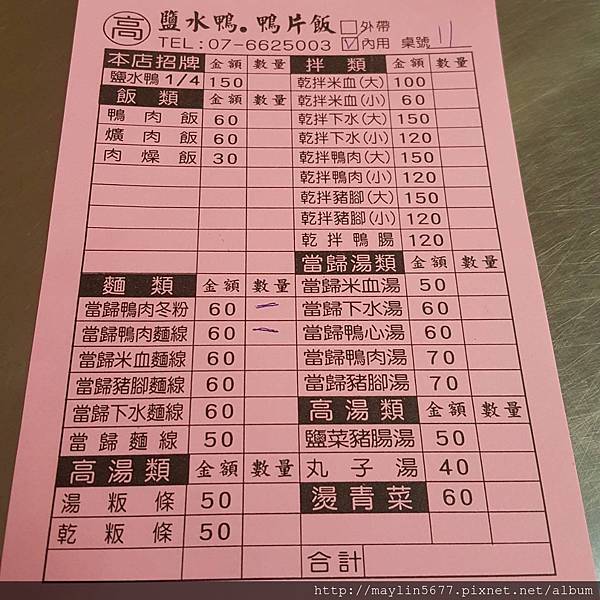 高 鹽水鴨。鴨片飯 □外帶
TEL:07-6625003 ☑內用 桌號 11
本店招牌 金額 數量
鹽水鴨1/4 150
飯類 金額 數量
鴨肉飯 60
爌肉飯 60
肉燥飯 30
麵類 金額 數量
當歸鴨肉冬粉 60 一
當歸鴨肉麵線 60 一
當歸米血麵線 60
當歸豬腳麵線 60
當歸下水麵線 60
當歸麵線 50
高湯類 金額 數量
湯粄條 50
乾粄條 50
拌類 金額 數量
乾拌米血(大) 100
乾拌米血(小) 60
乾拌下水(大) 150
乾拌下水(小) 120
乾拌鴨肉(大) 150
乾拌鴨肉(小) 120
乾拌豬腳(大) 150
乾拌豬腳(小) 120
乾拌鴨腸 120
當歸湯類 金額 數量
當歸米血湯 50
當歸下水湯 60
當歸鴨心湯 60
當歸鴨肉湯 70
當歸豬腳湯 70
高湯類 金額 數量
鹽菜豬腸湯 50
丸子湯 40
燙青菜 60
合計
http://maylin5677.pixnet.net/album